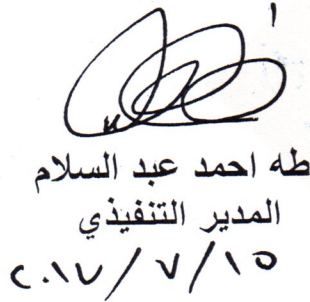 طه احمد عبد السلام
المدير التنفيذي
٢٠١٧/٧/١٥